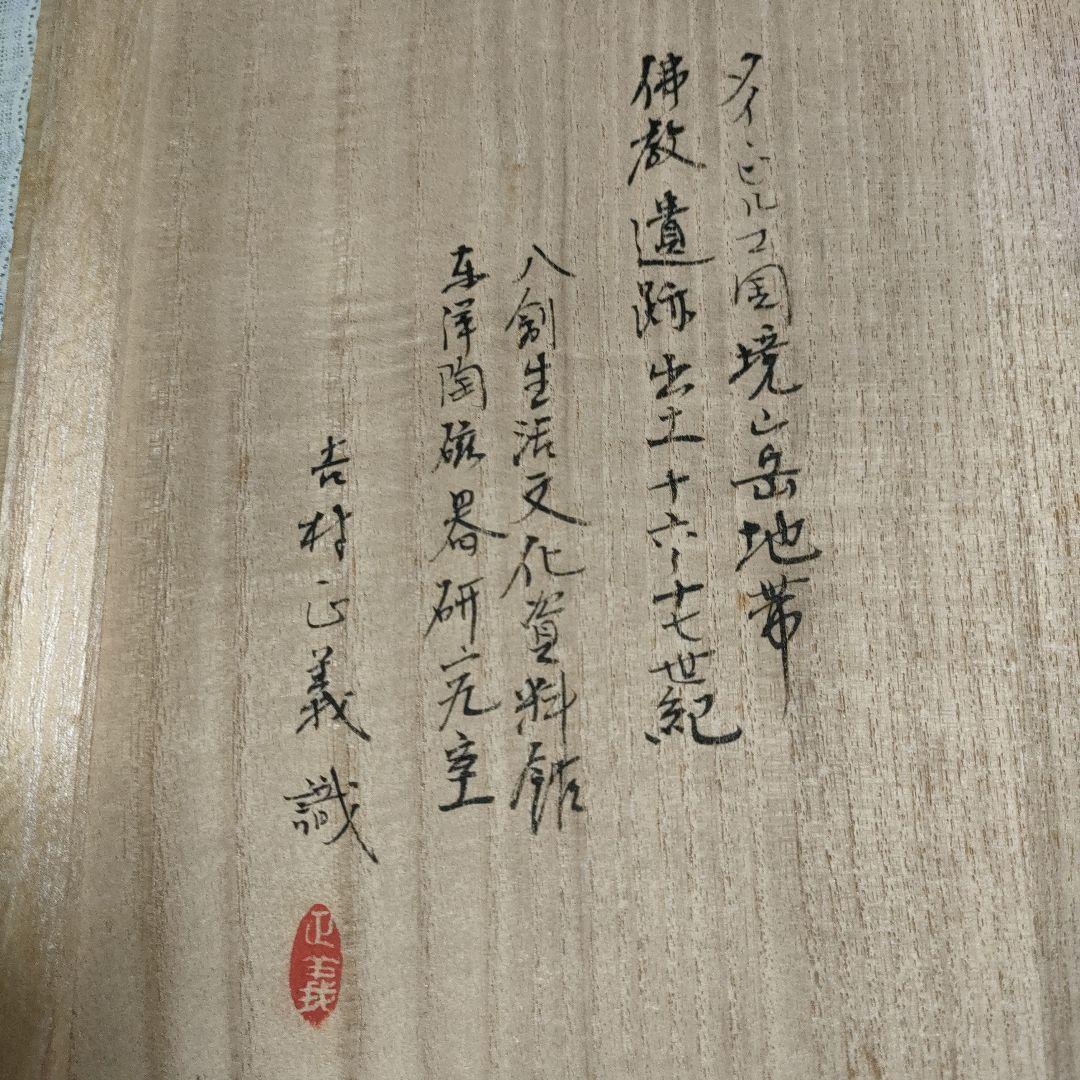 タイ・ビルマ国境山岳地帯
佛教遺跡出土十六〜十七世紀
八創生活文化資料館
东洋陶磁器研究室
吉村正義識
正義